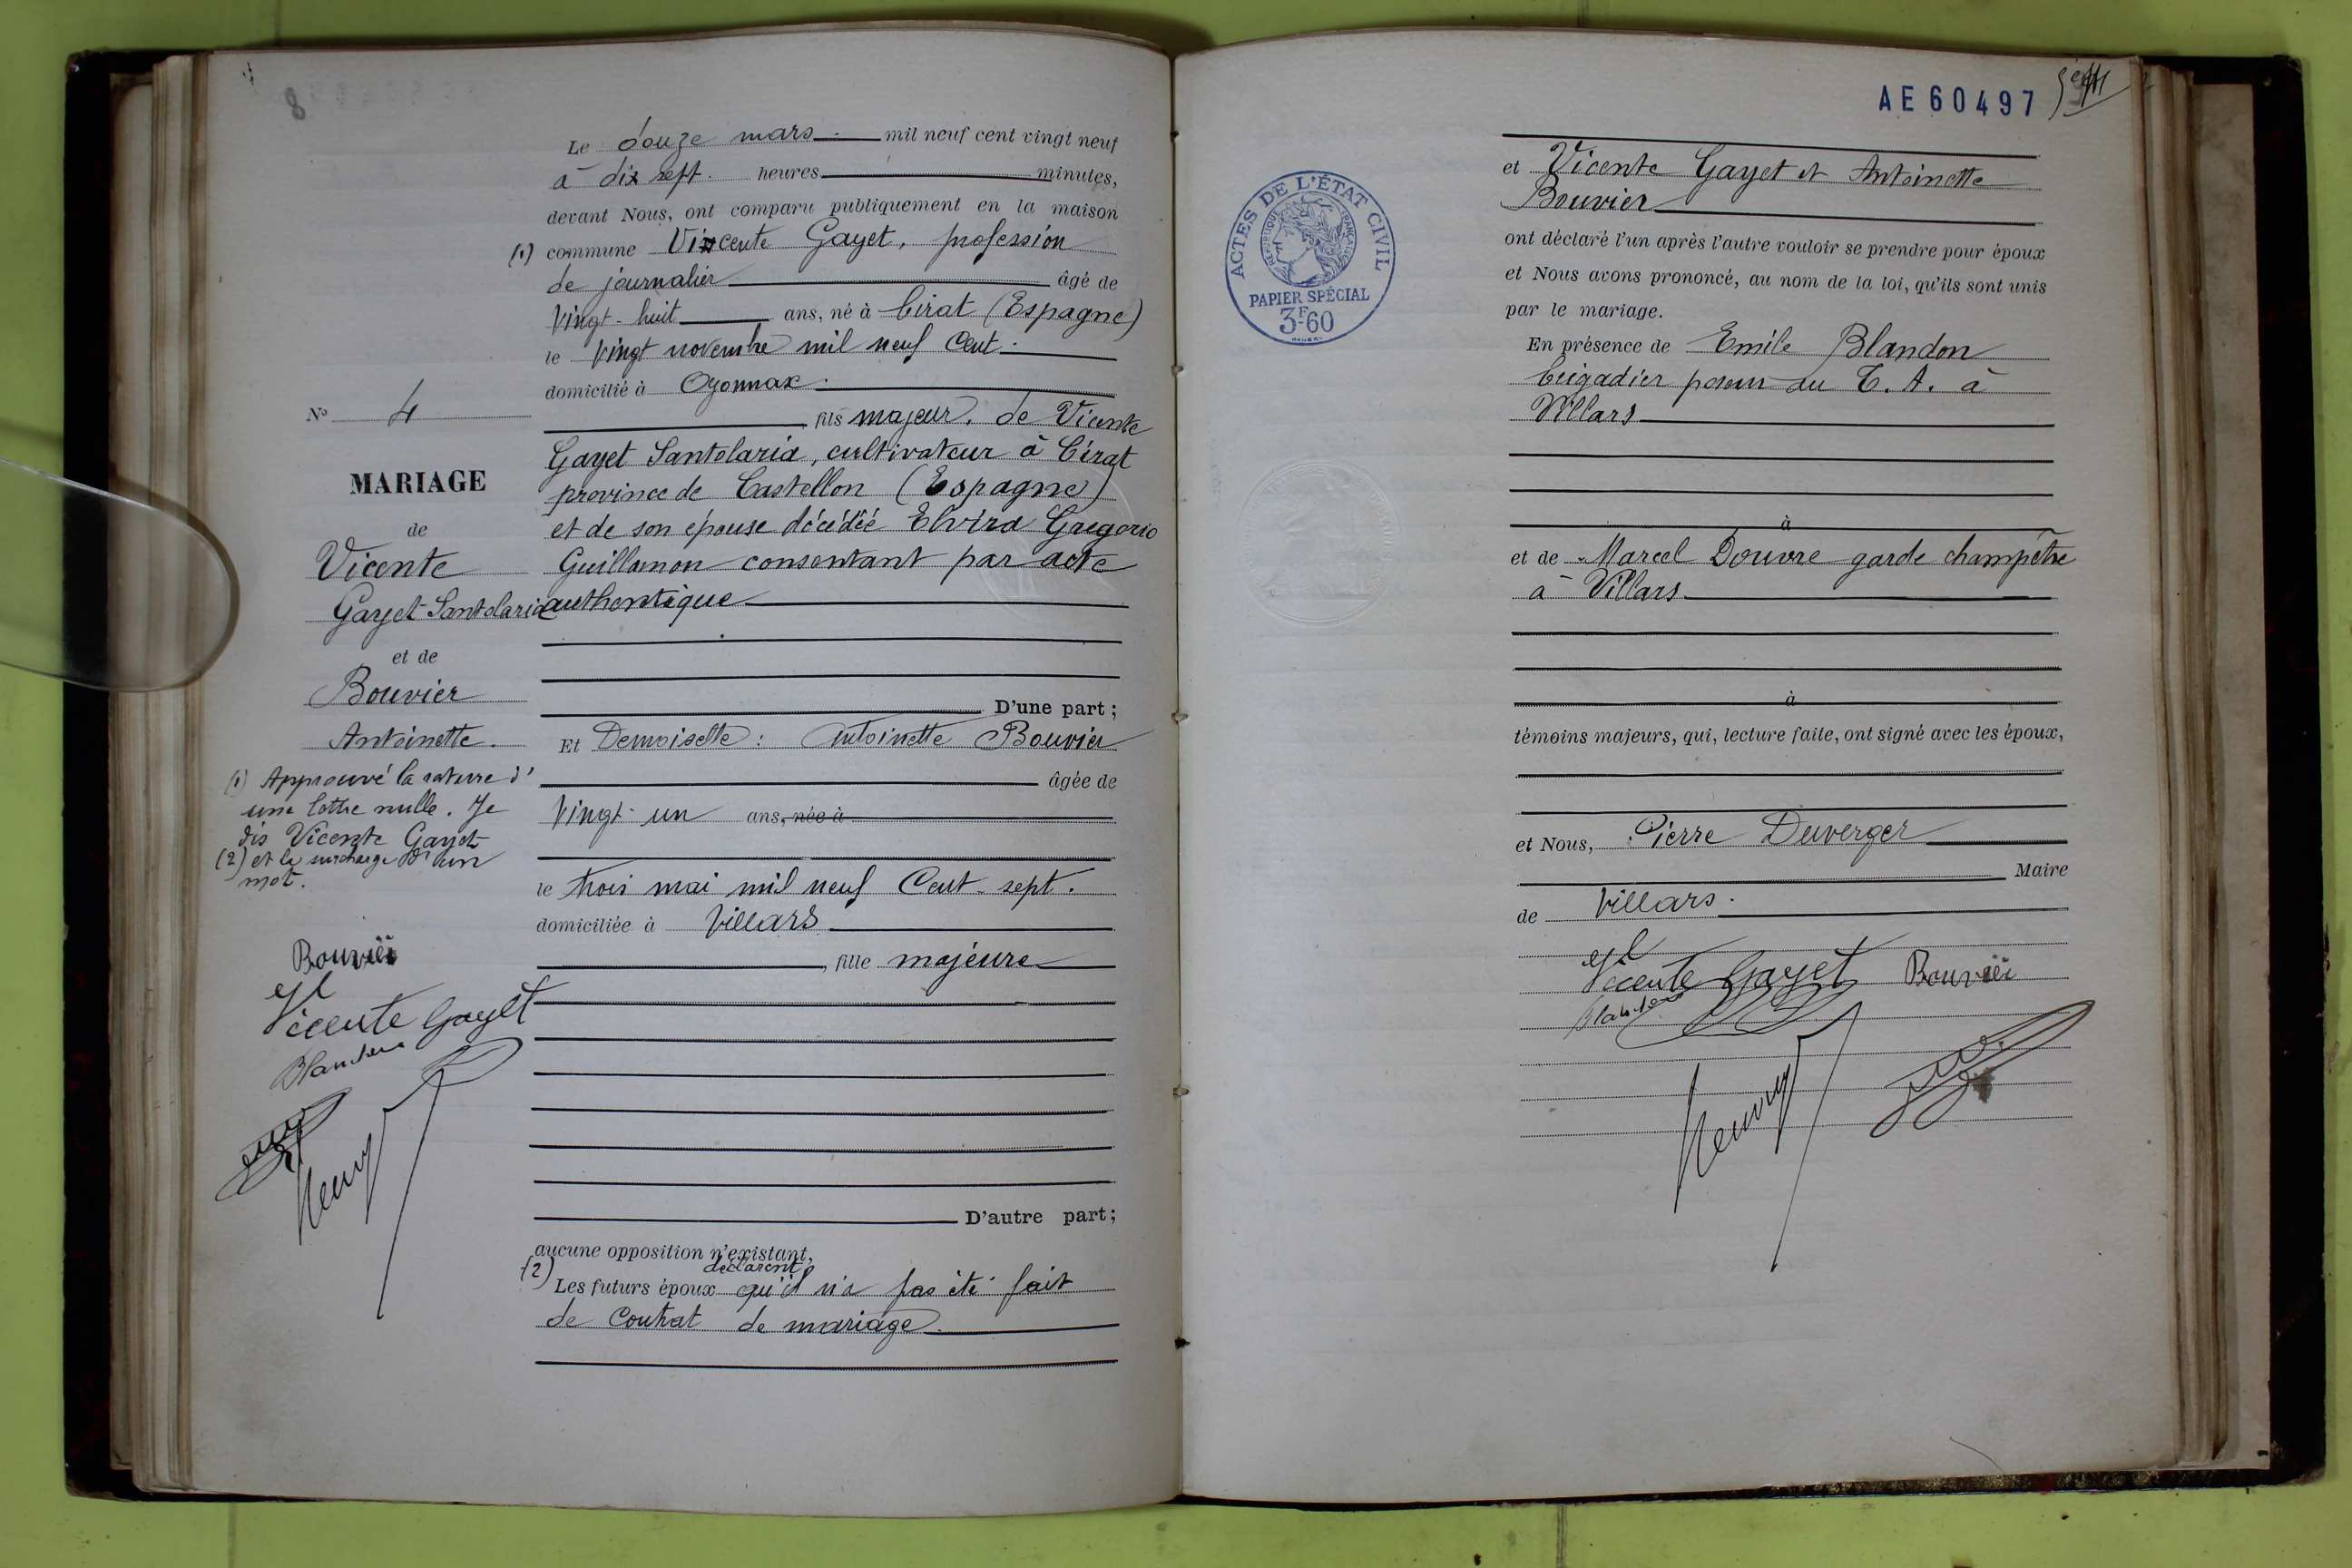 8
Le douze mars mil neuf cent vingt neuf
à dix sept heures minutes,
devant Nous, ont comparu publiquement en la maison
(1) commune Vincente Gayet, profession
de journalier âgé de
vingt-huit ans, né à Cirat (Espagne)
le vingt novembre mil neuf Cent
domicilié à Oyonnax
fils majeur, de Vicente
Gayet Santolaria, cultivateur à Cirat
province de Castellon (Espagne)
et de son épouse décédée Elvira Gregorio
Guillamon consentant par acte
authentique
D'une part;
Et Demoiselle: Antoinette Bouvier
âgée de
Vingt-un ans, née à
le trois mai mil neuf Cent-sept.
domiciliée à Villars
, fille majeure
D'autre part;
aucune opposition n'existant,
déclarent
(2) Les futurs époux qu'il n'a pas été fait
de Contrat de mariage.
N° 4
MARIAGE
de
Vicente
Gayet-Santolaria
et de
Bouvier
Antoinette.
(1) Approuvé la rature d'
une lettre nulle. Je
dis Vicente Gayet
(2) et la surcharge d'un
mot.
Bouvier
Vicente Gayet
Blandon
AE 60497
ACTES DE L'ÉTAT CIVIL
RÉPUBLIQUE FRANÇAISE
PAPIER SPÉCIAL
3F-60
et Vicente Gayet et Antoinette
Bouvier
ont déclaré l'un après l'autre vouloir se prendre pour époux
et Nous avons prononcé, au nom de la loi, qu'ils sont unis
par le mariage.
En présence de Emile Blandon
brigadier poseur au T. A. à
Villars
à
et de Marcel Douvre garde champêtre
à Villars
à
témoins majeurs, qui, lecture faite, ont signé avec les époux,
et Nous, Pierre Duverger
Maire
de Villars.
Vicente Gayet Bouvier
Blandon